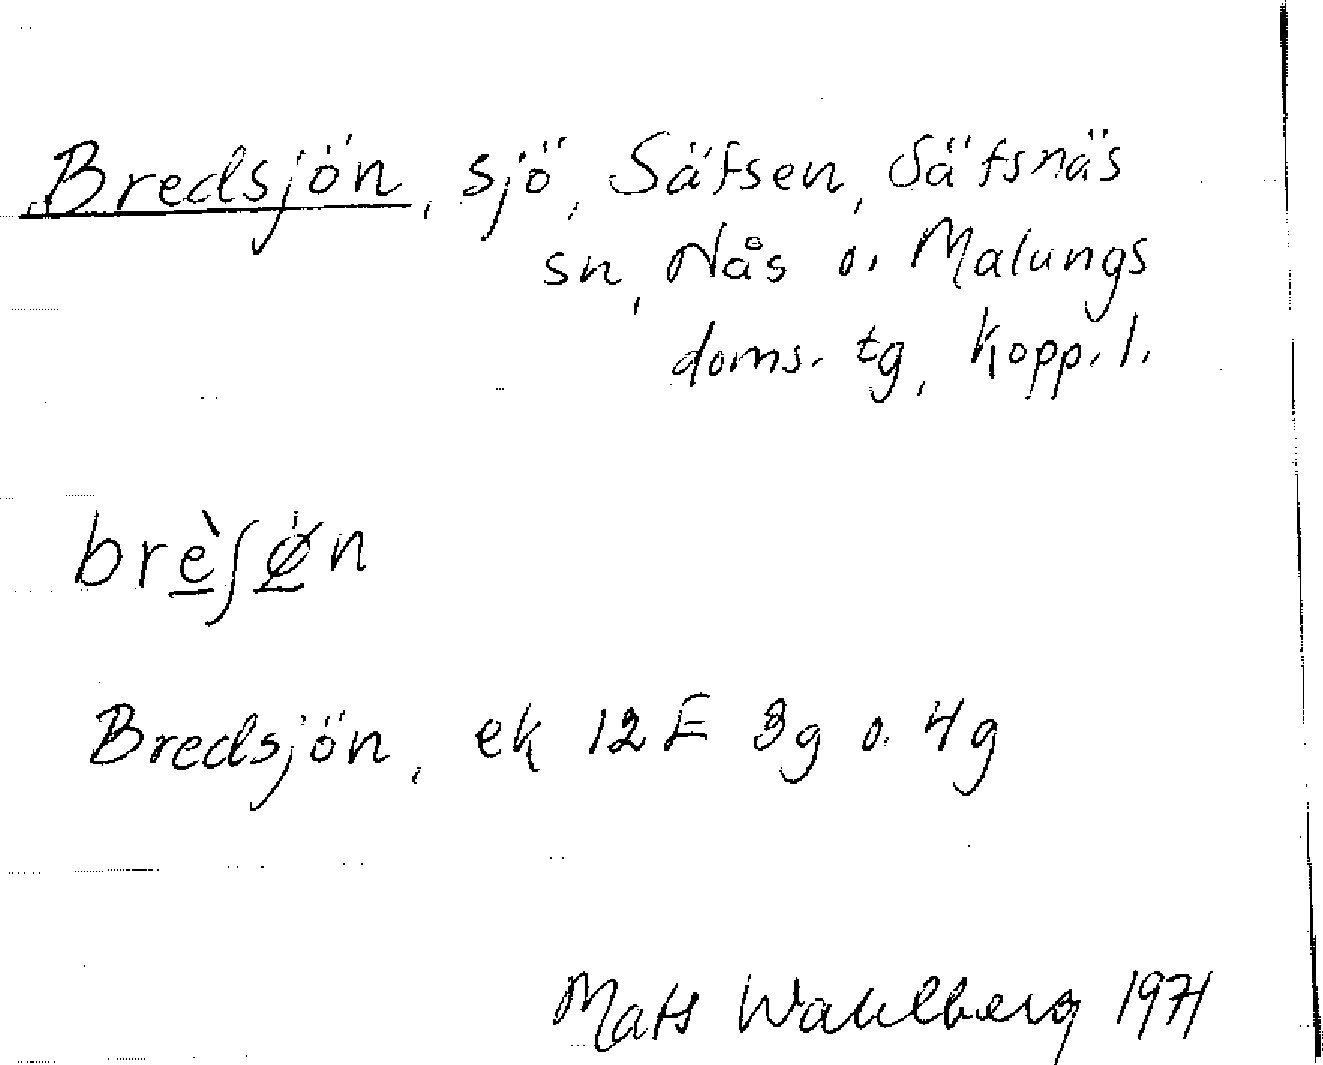 Bredsjön, sjö, Säfsen, Säfsnäs
sn, Nås o. Malungs
doms. tg, Kopp. l.
brè̲ʃø̲n
Bredsjön, ek 12E 3g o. 4g
Mats Wahlberg 1971